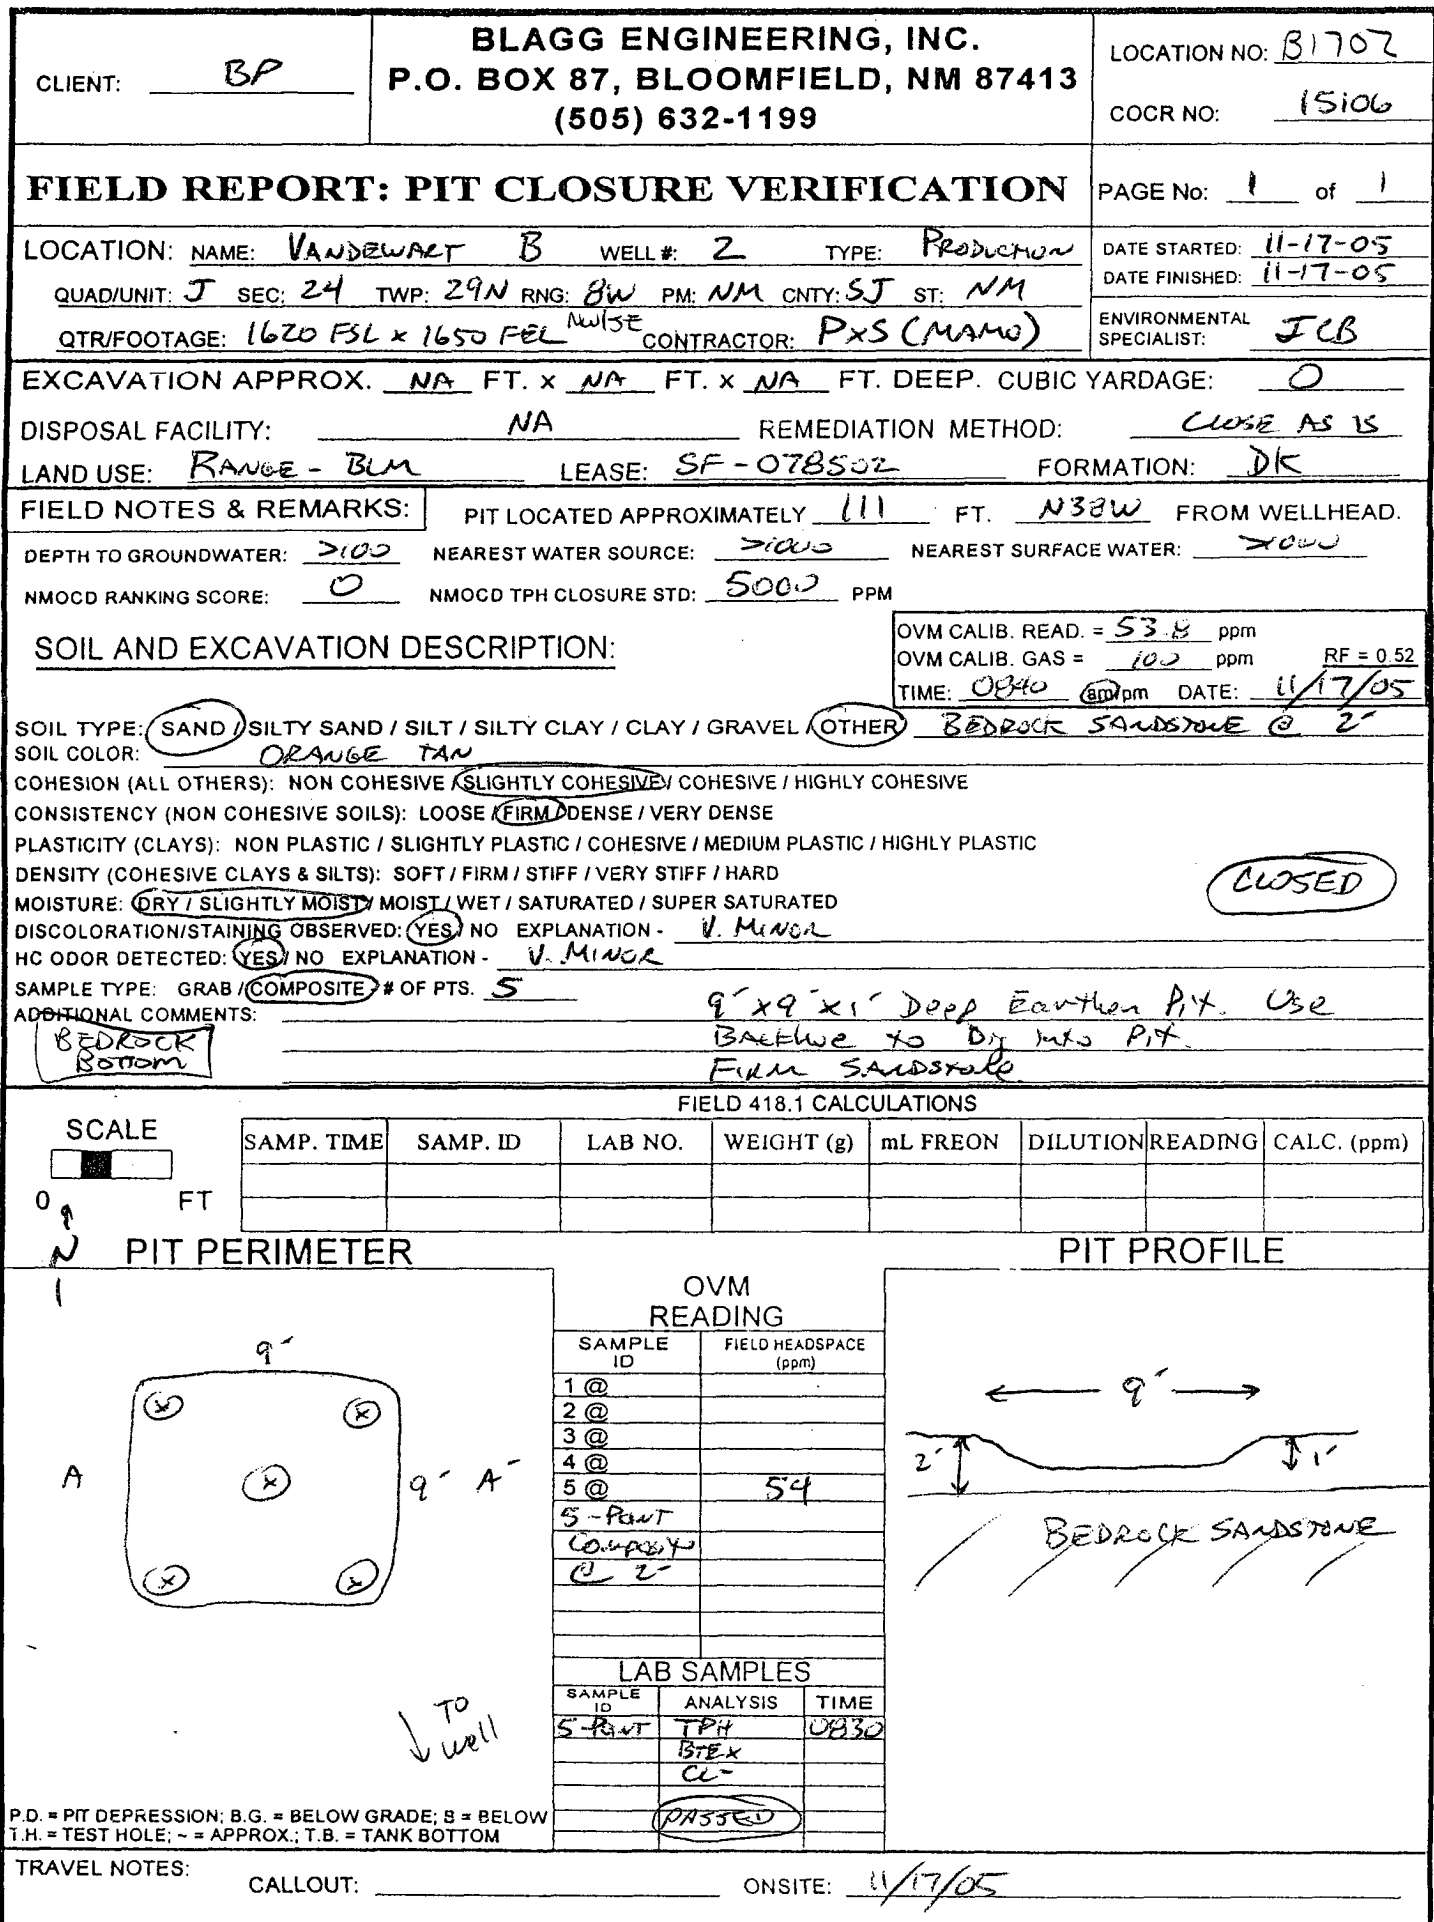 BLAGG ENGINEERING, INC.
P.O. BOX 87, BLOOMFIELD, NM 87413
(505) 632-1199
CLIENT: BP
LOCATION NO: B1702
COCR NO: 15106
FIELD REPORT: PIT CLOSURE VERIFICATION
PAGE No: 1 of 1
LOCATION: NAME: VANDEWART B WELL #: 2 TYPE: PRODUCTION
QUAD/UNIT: J SEC: 24 TWP: 29N RNG: 8W PM: NM CNTY: SJ ST: NM
QTR/FOOTAGE: 1620 FSL x 1650 FEL NW/SE CONTRACTOR: PxS (MAMO)
DATE STARTED: 11-17-05
DATE FINISHED: 11-17-05
ENVIRONMENTAL SPECIALIST: JCB
EXCAVATION APPROX. NA FT. x NA FT. x NA FT. DEEP. CUBIC YARDAGE: 0
DISPOSAL FACILITY: NA REMEDIATION METHOD: CLOSE AS IS
LAND USE: RANGE - BLM LEASE: SF-078502 FORMATION: DK
FIELD NOTES & REMARKS: PIT LOCATED APPROXIMATELY 111 FT. N38W FROM WELLHEAD.
DEPTH TO GROUNDWATER: >100 NEAREST WATER SOURCE: >1000 NEAREST SURFACE WATER: >1000
NMOCD RANKING SCORE: 0 NMOCD TPH CLOSURE STD: 5000 PPM
SOIL AND EXCAVATION DESCRIPTION:
OVM CALIB. READ. = 53.8 ppm
OVM CALIB. GAS = 100 ppm RF = 0.52
TIME: 0840 am/pm DATE: 11/17/05
SOIL TYPE: SAND / SILTY SAND / SILT / SILTY CLAY / CLAY / GRAVEL / OTHER BEDROCK SANDSTONE @ 2'
SOIL COLOR: ORANGE TAN
COHESION (ALL OTHERS): NON COHESIVE / SLIGHTLY COHESIVE / COHESIVE / HIGHLY COHESIVE
CONSISTENCY (NON COHESIVE SOILS): LOOSE / FIRM / DENSE / VERY DENSE
PLASTICITY (CLAYS): NON PLASTIC / SLIGHTLY PLASTIC / COHESIVE / MEDIUM PLASTIC / HIGHLY PLASTIC
DENSITY (COHESIVE CLAYS & SILTS): SOFT / FIRM / STIFF / VERY STIFF / HARD
MOISTURE: DRY / SLIGHTLY MOIST / MOIST / WET / SATURATED / SUPER SATURATED
CLOSED
DISCOLORATION/STAINING OBSERVED: YES / NO EXPLANATION - V. MINOR
HC ODOR DETECTED: YES / NO EXPLANATION - V. MINOR
SAMPLE TYPE: GRAB / COMPOSITE # OF PTS. 5
ADDITIONAL COMMENTS: 9' x 9' x 1' Deep Earthen Pit. Use
Backhoe to Dig into Pit.
FIRM SANDSTONE
BEDROCK
BOTTOM
FIELD 418.1 CALCULATIONS
SCALE
0 FT
SAMP. TIME SAMP. ID LAB NO. WEIGHT (g) mL FREON DILUTION READING CALC. (ppm)
N
PIT PERIMETER
PIT PROFILE
OVM
READING
SAMPLE ID FIELD HEADSPACE (ppm)
1 @
2 @
3 @
4 @
5 @ 54
5-Point
Composite
@ 2'
9'
A
9'
A'
9'
2'
1'
BEDROCK SANDSTONE
TO
well
LAB SAMPLES
SAMPLE ID ANALYSIS TIME
5-Point TPH 0830
BTEX
CL-
PASSED
P.D. = PIT DEPRESSION; B.G. = BELOW GRADE; B = BELOW
T.H. = TEST HOLE; ~ = APPROX.; T.B. = TANK BOTTOM
TRAVEL NOTES:
CALLOUT: ONSITE: 11/17/05